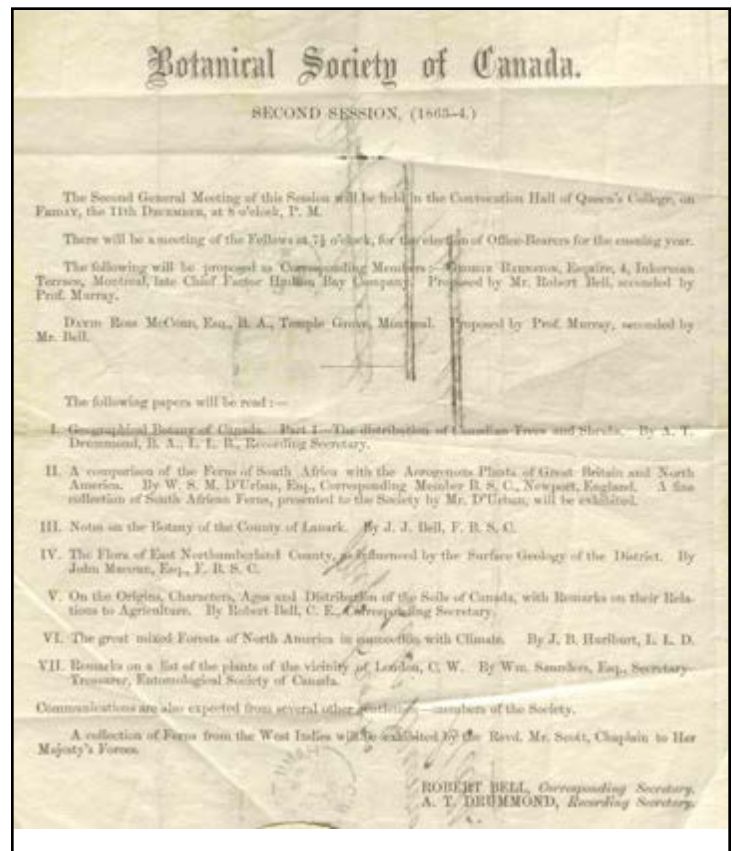 Botanical Society of Canada.
SECOND SESSION, (1863-4.)
The Second General Meeting of this Session will be held in the Convocation Hall of Queen's College, on
FRIDAY, the 11th DECEMBER, at 8 o'clock, P. M.
There will be a meeting of the Fellows at 7½ o'clock, for the election of Office-Bearers for the ensuing year.
The following will be proposed as Corresponding Members :— GEORGE BARNSTON, Esquire, 4, Inkerman
Terrace, Montreal, late Chief Factor Hudson Bay Company. Proposed by Mr. Robert Bell, seconded by
Prof. Murray.
DAVID ROSS McCORD, Esq., B. A., Temple Grove, Montreal. Proposed by Prof. Murray, seconded by
Mr. Bell.
The following papers will be read :—
I. Geographical Botany of Canada. Part I—The distribution of Canadian Trees and Shrubs. By A. T.
Drummond, B. A., L. L. B., Recording Secretary.
II. A comparison of the Ferns of South Africa with the Acrogenous Plants of Great Britain and North
America. By W. S. M. D'Urban, Esq., Corresponding Member B. S. C., Newport, England. A fine
collection of South African Ferns, presented to the Society by Mr. D'Urban, will be exhibited.
III. Notes on the Botany of the County of Lanark. By J. J. Bell, F. B. S. C.
IV. The Flora of East Northumberland County, as influenced by the Surface Geology of the District. By
John Macoun, Esq., F. B. S. C.
V. On the Origins, Characters, Ages and Distribution of the Soils of Canada, with Remarks on their Rela-
tions to Agriculture. By Robert Bell, C. E., Corresponding Secretary.
VI. The great mixed Forests of North America in connection with Climate. By J. B. Hurlburt, L. L. D.
VII. Remarks on a list of the plants of the vicinity of London, C. W. By Wm. Saunders, Esq., Secretary-
Treasurer, Entomological Society of Canada.
Communications are also expected from several other gentlemen—members of the Society.
A collection of Ferns from the West Indies will be exhibited by the Revd. Mr. Scott, Chaplain to Her
Majesty's Forces.
ROBERT BELL, Corresponding Secretary.
A. T. DRUMMOND, Recording Secretary.